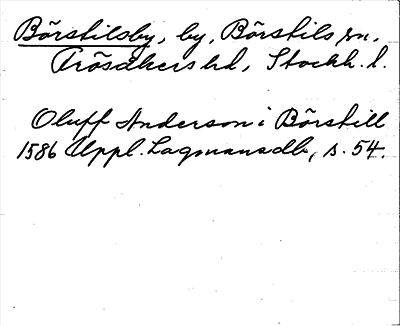 Börstilsby, by, Börstils sn,
Frösåkers hd, Stockh. l.
Oluff Anderson i Börstill
1586 Uppl. Lagmansdb, s. 54.